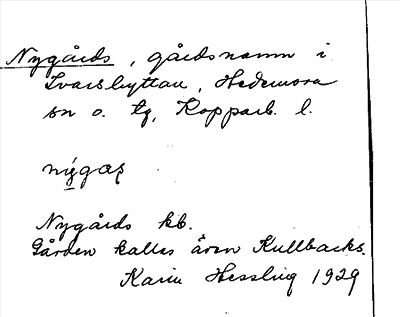 Nygårds, gårdsnamn i
Ivarshyttan, Hedemora
sn o. tg, Kopparb. l.
Nygårds kb.
Gården kallas även Kullbacks.
Karin Hessling 1929